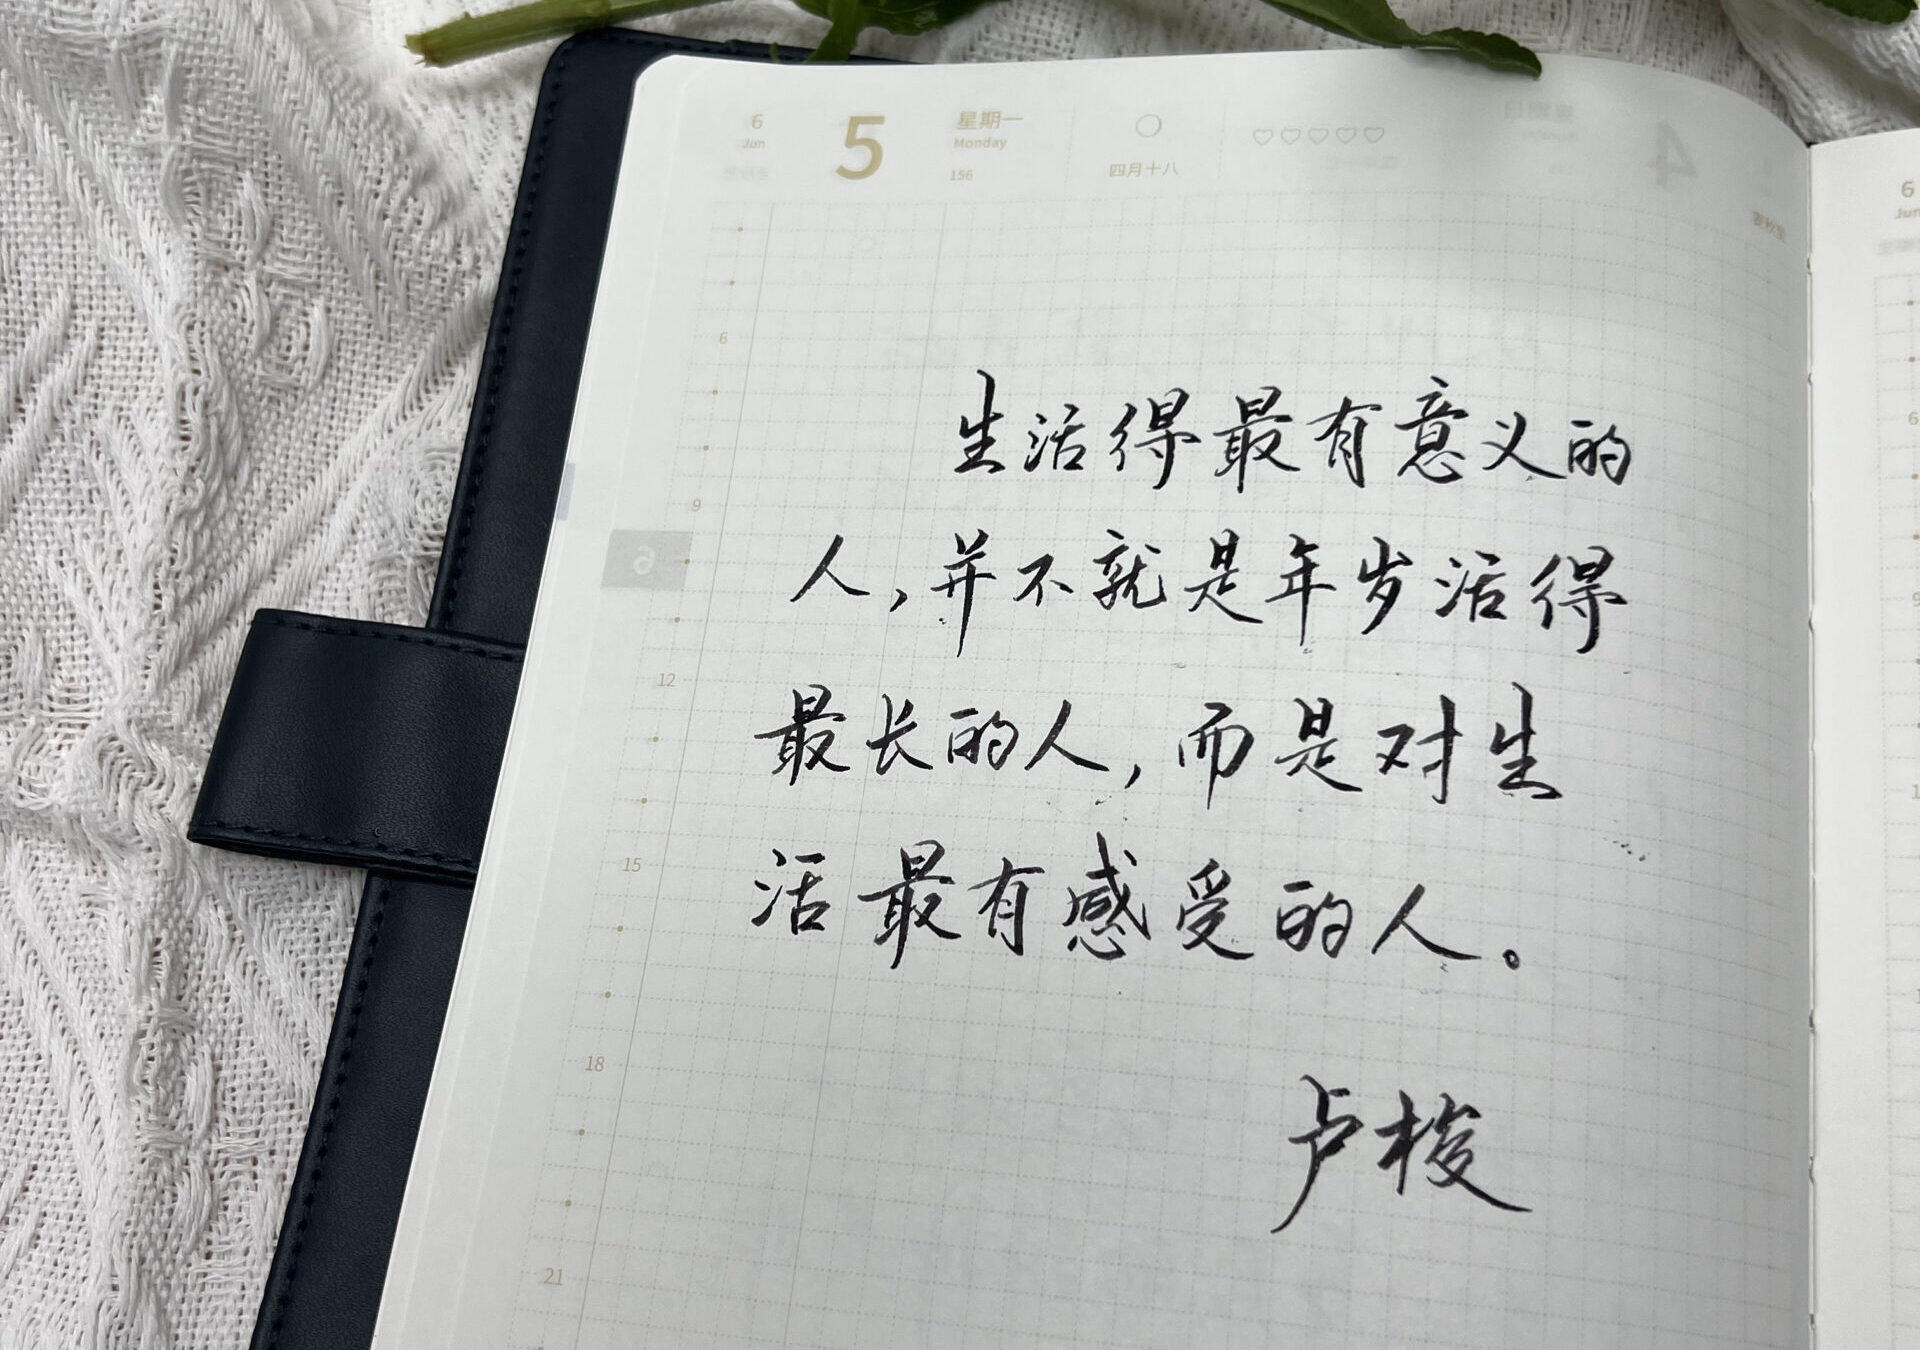 6
Jun
5
星期一
Monday
156
四月十八
6
9
12
15
18
21
生活得最有意义的
人,并不就是年岁活得
最长的人,而是对生
活最有感受的人。
卢梭
6
Jun
6